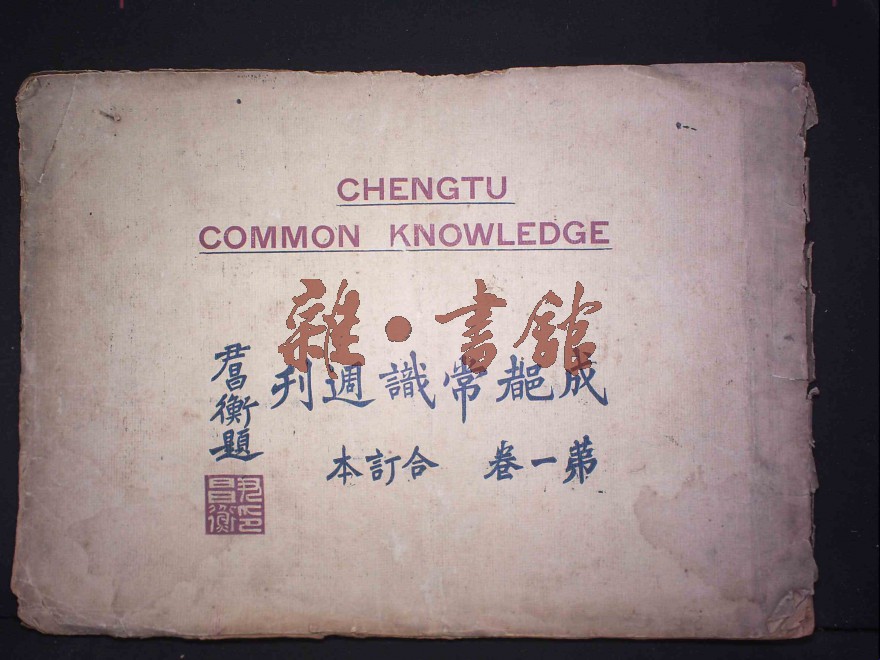 CHENGTU
COMMON KNOWLEDGE
雜·書館
成都常識週刊
第一卷 合訂本
尹昌衡題
尹印昌衡